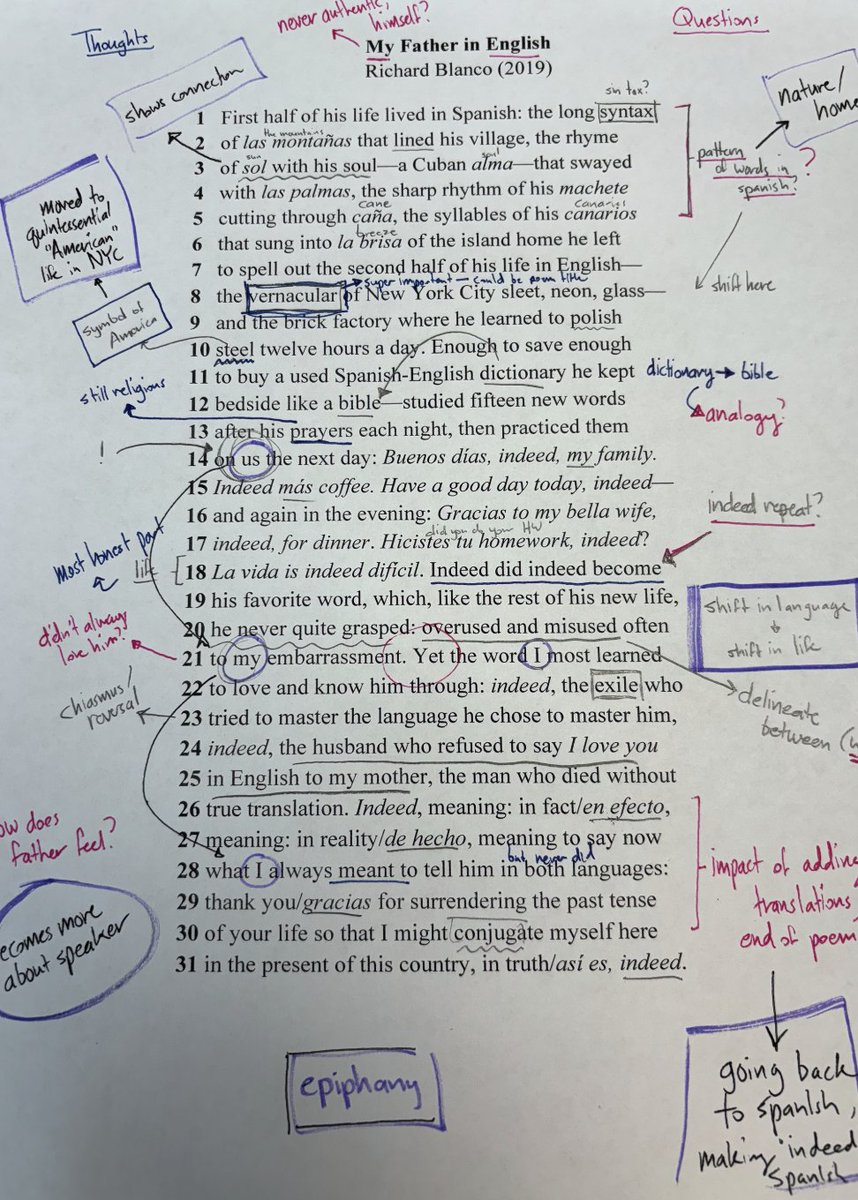 never authentic,
himself?
Thoughts
Questions
My Father in English
Richard Blanco (2019)
shows connection
sin tax?
nature/
home
1 First half of his life lived in Spanish: the long syntax
the mountains
2 of las montañas that lined his village, the rhyme
sun
soul
3 of sol with his soul—a Cuban alma—that swayed
pattern
of words in
spanish?
?
4 with las palmas, the sharp rhythm of his machete
cane
canaries
5 cutting through caña, the syllables of his canarios
breeze
6 that sung into la brisa of the island home he left
moved to
quintessential
"American"
life in NYC
7 to spell out the second half of his life in English—
super important – could be poem title
shift here
8 the vernacular of New York City sleet, neon, glass—
9 and the brick factory where he learned to polish
symbol of
America
10 steel twelve hours a day. Enough to save enough
11 to buy a used Spanish-English dictionary he kept
dictionary → bible
still religious
12 bedside like a bible—studied fifteen new words
analogy?
13 after his prayers each night, then practiced them
!
14 on us the next day: Buenos días, indeed, my family.
15 Indeed más coffee. Have a good day today, indeed—
16 and again in the evening: Gracias to my bella wife,
indeed repeat?
did you do your HW
17 indeed, for dinner. Hicistes tu homework, indeed?
most honest part
life
18 La vida is indeed difícil. Indeed did indeed become
19 his favorite word, which, like the rest of his new life,
shift in language
shift in life
20 he never quite grasped: overused and misused often
didn't always
love him?
21 to my embarrassment. Yet the word I most learned
22 to love and know him through: indeed, the exile who
chiasmus/
reversal
delineate
between
23 tried to master the language he chose to master him,
24 indeed, the husband who refused to say I love you
25 in English to my mother, the man who died without
26 true translation. Indeed, meaning: in fact/en efecto,
27 meaning: in reality/de hecho, meaning to say now
how does
father feel?
but never did
28 what I always meant to tell him in both languages:
impact of adding
translations
end of poem
29 thank you/gracias for surrendering the past tense
30 of your life so that I might conjugate myself here
31 in the present of this country, in truth/así es, indeed.
becomes more
about speaker
epiphany
going back
to spanish,
making "indeed
spanish